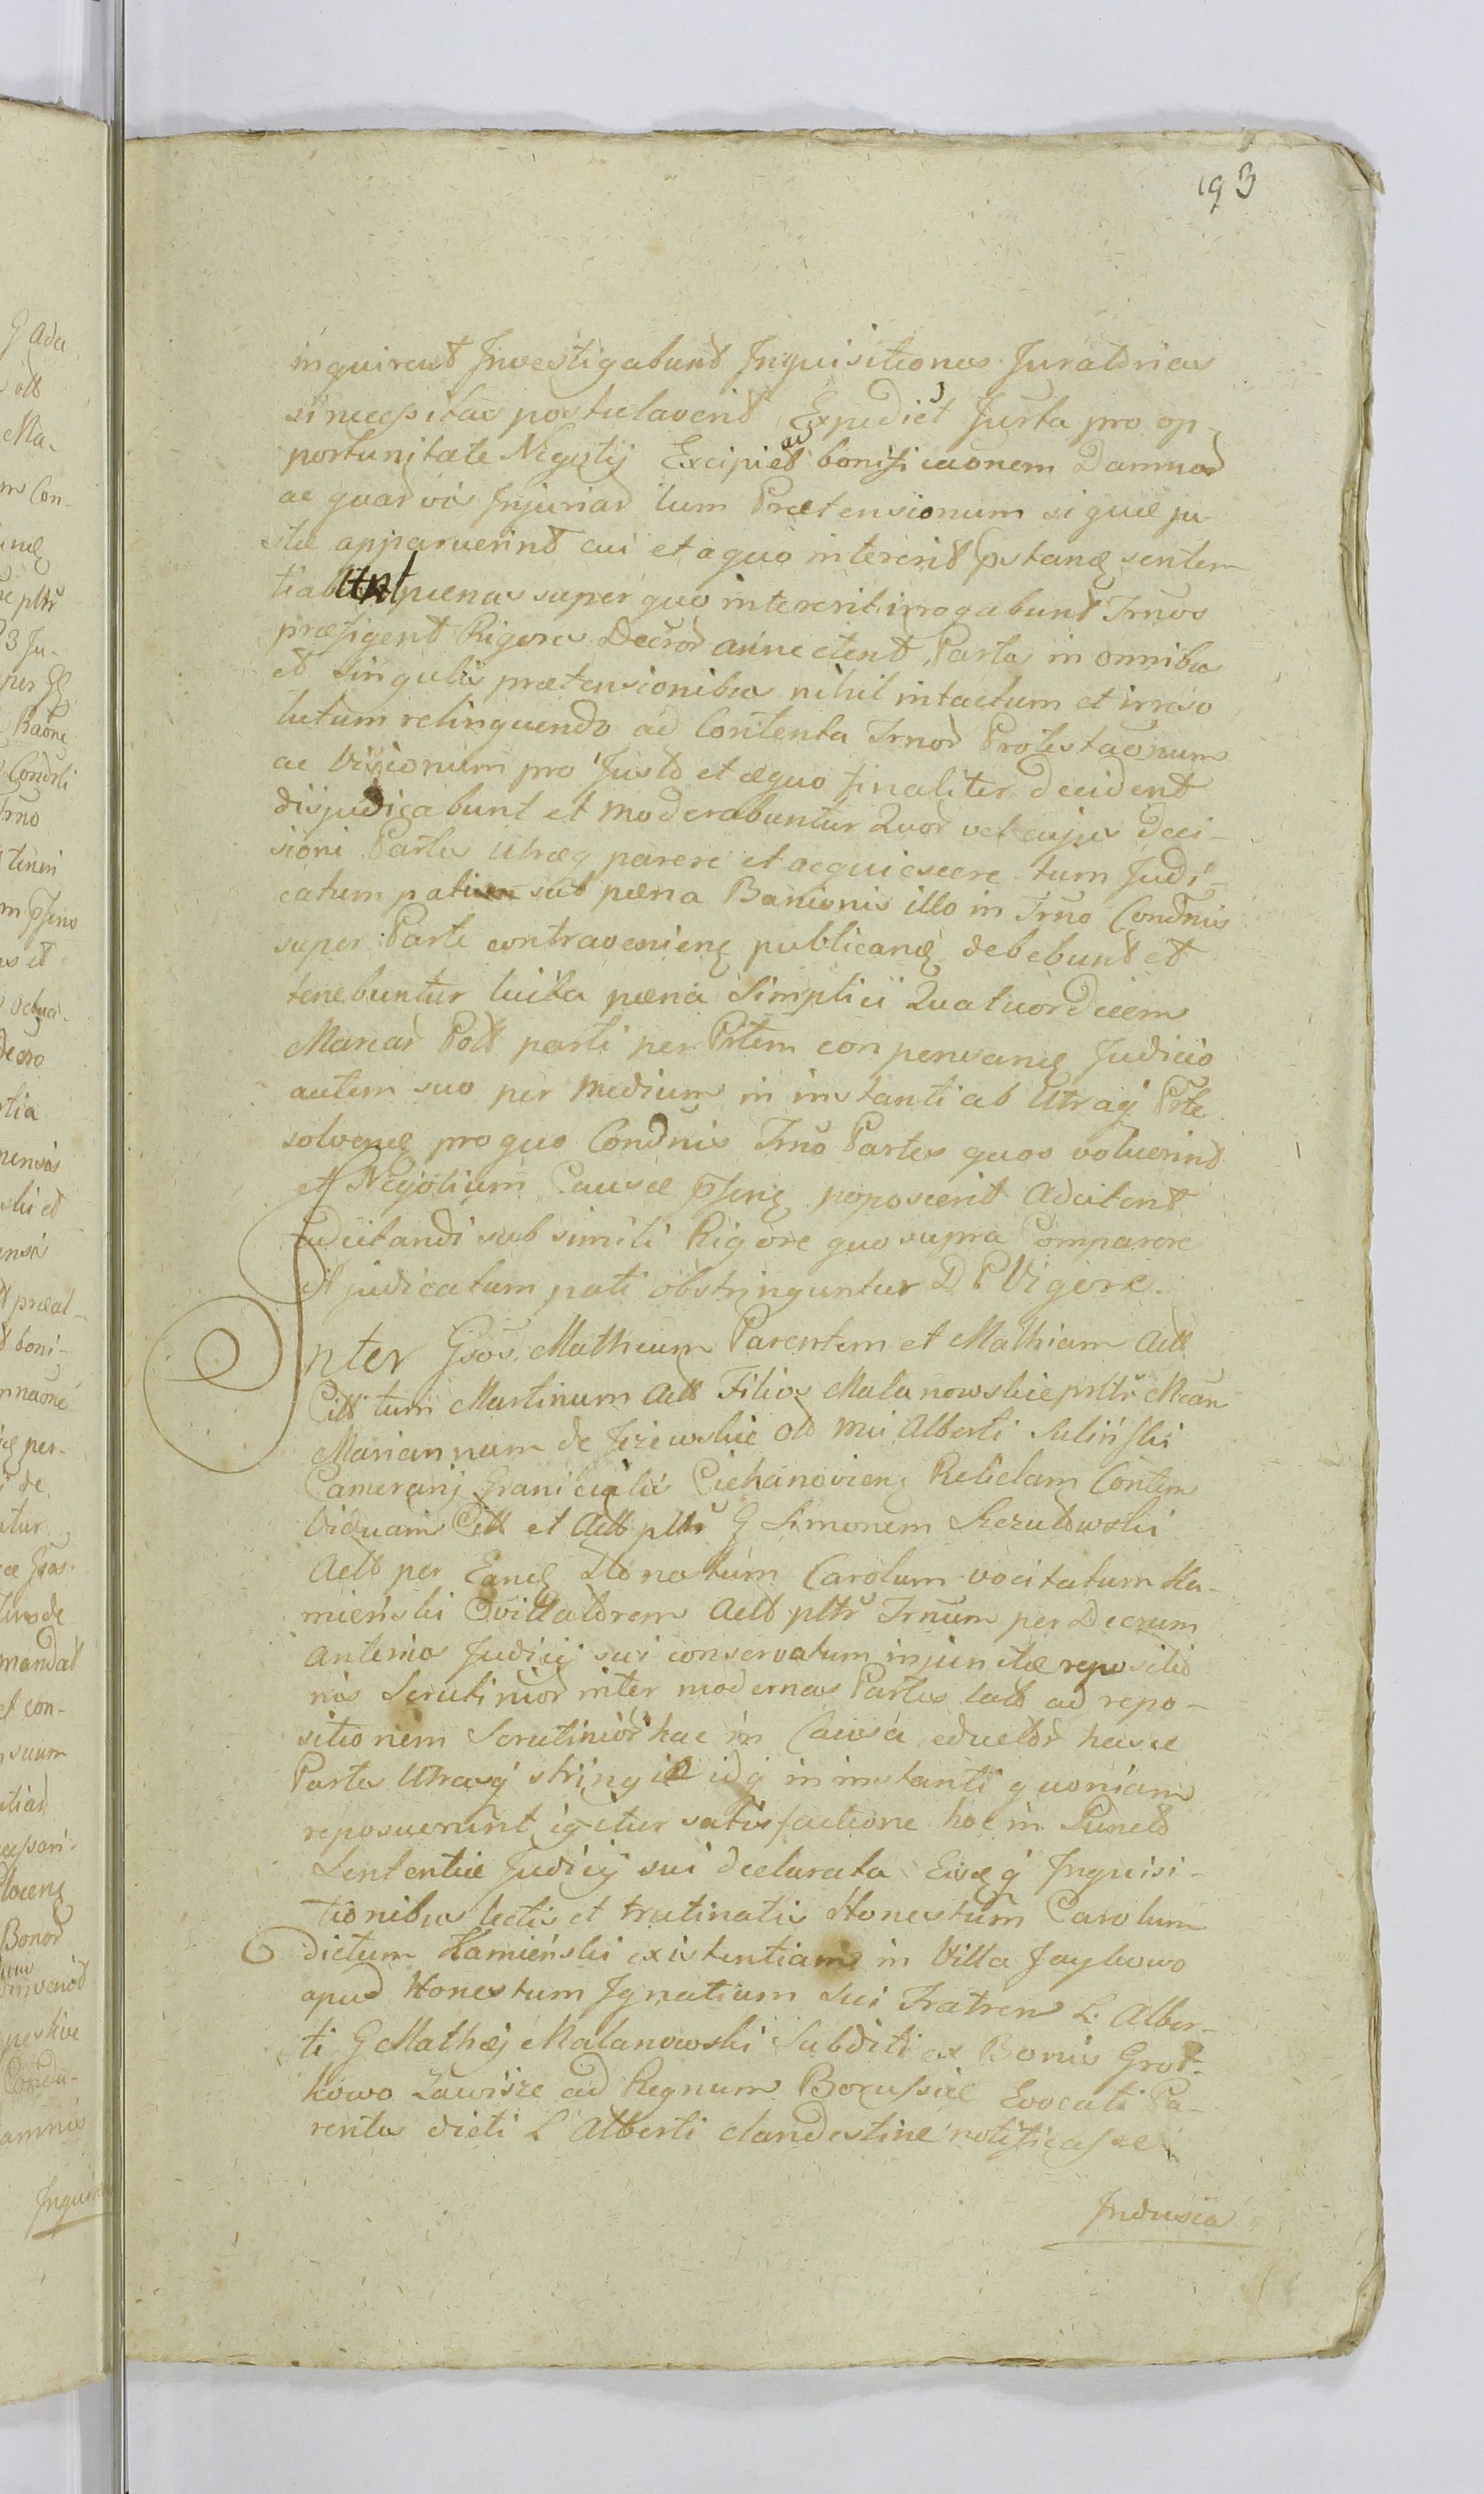 193
inquirent Investigabunt Inquisitiones Juratorias
si necessitas postulaverit Expediet Jurta pro op-
portunitate Negotij Excipiet ac bonificaonem Damnor
ac quarvis Injuriar tum Prætensionum si quæ ju
stæ apparuerint cui et a quo intererit pstanẹ senten
tiabunt pænas super quo intererit irrogabunt Trnos
præfigent Rigores Decror annectent Partes in omnibus
et singulis prætensionibus nihil intactum et irreso
lutum relinquendo ad Contenta Trnor Protestaonum
ac Visionum pro Justo et æquo finaliter decident
disjudicabunt et moderabuntur Quor vel cujus Deci-
sioni Partes Utræq parere et acquiescere tum Judi-
catum pati sub pæna Banionis illo in Trno Condnis
super Parte contravenienẹ publicanẹ debebunt et
tenebuntur luita pæna Simplici Quatuordecem
Marcar Poll parti per Prtem conpensanẹ Judicio
autem suo per medium in instanti ab Utraq Prte
solvenẹ pro quo Condnis Trno Partes quos voluerint
et Negotium Causæ psenẹ poposcerit Adcitent
adcitandi sub simili Rigore quo supra Comparere
et judicatum pati obstringuntur D P Vigore.
Inter Gsos Matheum Parentem et Mathiam Act
Citt tum Martinum Act Filios Malanowskie pnltr Mcam
Mariannam de Jeżewskie ol Mci Alberti Suliński
Camerarij Granicialis Ciechanovienẹ Relictam Contem
Viduam Citt et Act pltr G Simonem Szczutowski
Act per Eanẹ Honestum Carolum vocitatum Ka-
mieński Act pltr Trnum per Decrum
anterius Judicij sui conservatum injunctæ repositio
nis Scrutinior inter modernas Partes lat ad repo-
sitionem Scrutinior hac in Causa eductor hasce
Partes Utrasq stringit idq in instanti quoniam
reposuerunt igitur satisfactione hoc in Puncto
Sententiæ Judicij sui declarata Eisq Inquisi-
tionibus lectis et trutinatis Honestum Carolum
dictum Kamieński existentiam in Villa Jaykowo
apud Honestum Ignatium sui Fratrem L. Alber-
ti G Mathej Malanowski Subditi ex Bonis Grot-
kowo Zawisze ad Regnum Borussiæ Evocati Pa-
rentes dicti L Alberti clandestine notificasse
Indusia